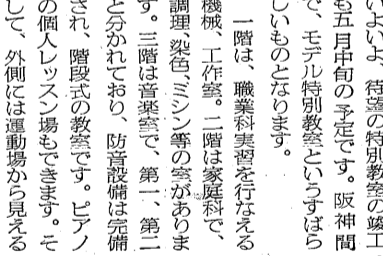 いよいよ、待望の特別教室の竣工
も五月中旬の予定です。阪神間
で、モデル特別教室というすばら
しいものとなります。
一階は、職業科実習を行なえる
機械、工作室。二階は家庭科で、
調理、染色、ミシン等の室がありま
す。三階は音楽室で、第一、第二
と分かれており、防音設備は完備
され、階段式の教室です。ピアノ
の個人レッスン場もできます。そ
して、外側には運動場から見える